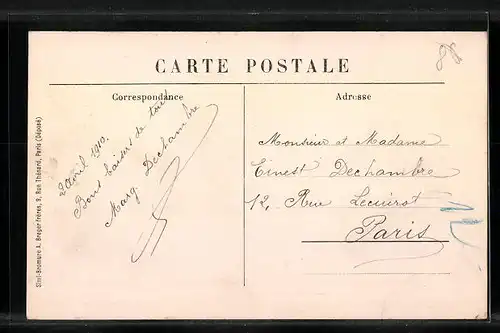 CARTE POSTALE
Correspondance
Adresse
2 avril 1910.
Bons baisers de tous
Marg. Dechambre
Monsieur et Madame
Ernest Dechambre
12, Rue Lecuirot
Paris
Simi-Bromure A. Breger Frères, 9, Rue Thénard, Paris (Déposé)